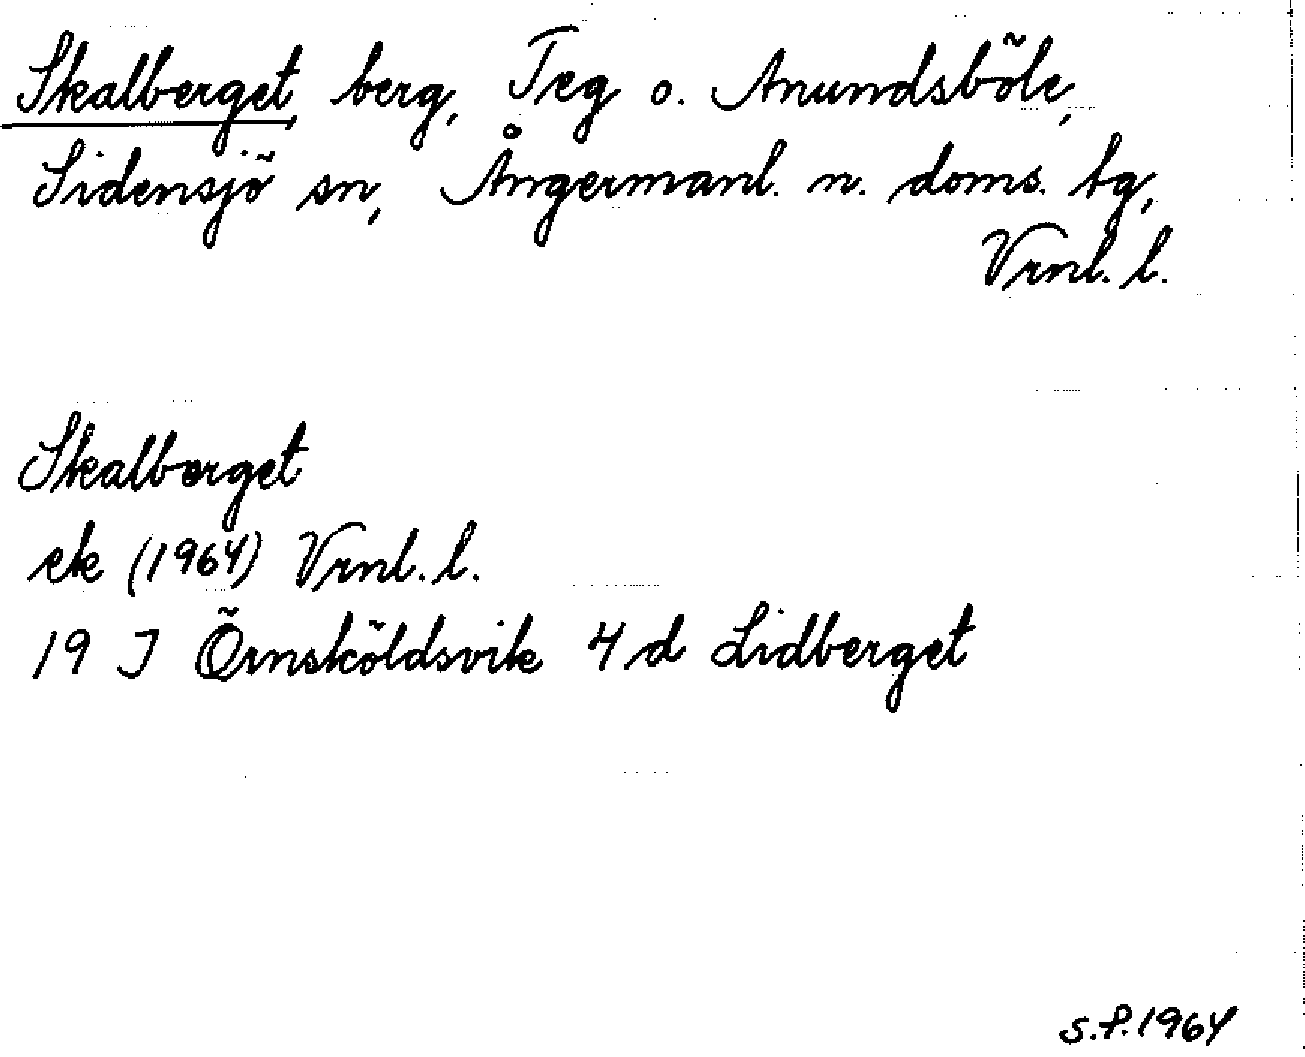 Skalberget, berg, Teg o. Anundsböle,
Sidensjö sn, Ångermanl. n. doms. tg,
Vrnl. l.
Skalberget
ek (1964) Vrnl. l.
19 J Örnsköldsvik 4 d Lidberget
S.F. 1964